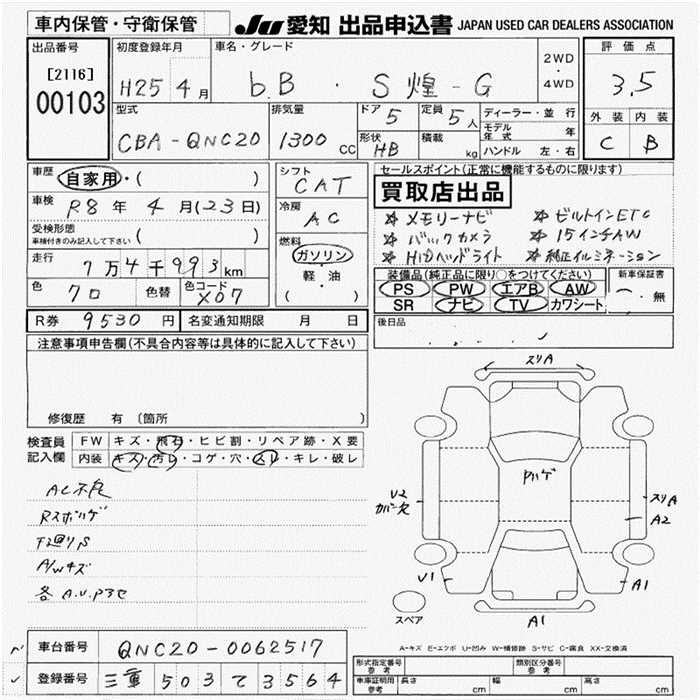 車内保管・守衛保管
JU 愛知 出品申込書 JAPAN USED CAR DEALERS ASSOCIATION
出品番号
[2116]
00103
初度登録年月
H25 4 月
車名・グレード
bB・S煌-G
2WD
・
4WD
評価点
3.5
外装 内装
C B
型式
CBA-QNC20
排気量
1300 cc
ドア 5
定員 5 人
形状 HB
積載 kg
ディーラー・並行
モデル年式 年
ハンドル 左・右
車歴 自家用・( )
車検 R8 年 4 月(23日)
受検形態
車検付きのみ記入して下さい ( )
走行 7万4千993km
色 クロ 色替 色コード X07
シフト
CAT
冷房
AC
燃料
ガソリン
・
軽・油
( )
セールスポイント(正常に機能するものに限ります)
買取店出品
☆ メモリーナビ ☆ ビルトインETC
☆ バックカメラ ☆ 15インチAW
☆ HIDヘッドライト ☆ 純正イルミネーション
装備品(純正品に限り○をつけてください)
PS PW エアB AW
SR ナビ TV カワシート
新車保証書
・無
R券 9530 円 名変通知期限 月 日
後日品
注意事項申告欄(不具合内容等は具体的に記入して下さい)
修復歴 有 〔箇所 〕
検査員記入欄
FW キズ・飛石・ヒビ割・リペア跡・X要
内装 キズ・汚レ・コゲ・穴・スレ・キレ・破レ
AC不良
Rスポハゲ
下廻りS
A/Wキズ
各A.U.Pヨセ
スリA
Pハゲ
U2
カバー欠
スリA
A2
U1
A1
A1
スペア
A-キズ E-エクボ U-凹み W-補修跡 S-サビ C-腐食 XX-交換済
車台番号 QNC20-0062517
登録番号 三重 503 て 3564
形式指定番号 参考
類別区分番号 参考
車庫証明用 参考 長さ cm 幅 cm 高さ cm